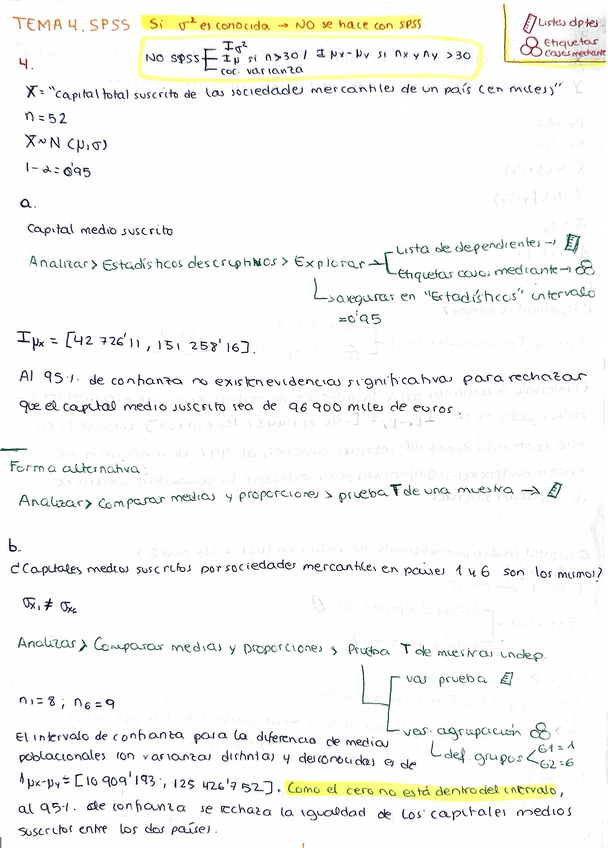 TEMA 4. SPSS Si σ² es conocida → NO se hace con SPSS
Listas dptes.
Etiquetas casos mediante
NO SPSS I σ²
I μ si n>30 / I μx-μy si nx y ny >30
coc. varianza
4.
X = "capital total suscrito de las sociedades mercantiles de un país (en miles)"
n = 52
X ~ N (μ, σ)
1-α = 0'95
a.
Capital medio suscrito
Analizar > Estadísticos descriptivos > Explorar → Lista de dependientes →
Etiquetas casos mediante →
→ asegurar en "Estadísticos" intervalo
= 0'95
I μx = [42 726'11, 151 258'16].
Al 95% de confianza no existen evidencias significativas para rechazar
que el capital medio suscrito sea de 96 900 miles de euros.
Forma alternativa:
Analizar > Comparar medias y proporciones > prueba T de una muestra →
b.
¿Capitales medios suscritos por sociedades mercantiles en países 1 y 6 son los mismos?
σx₁ ≠ σx₆
Analizar > Comparar medias y proporciones > Prueba T de muestras indep.
vas prueba
n₁ = 8 ; n₆ = 9
var. agrupación
def. grupos G1 = 1
G2 = 6
El intervalo de confianza para la diferencia de medias
poblacionales con varianzas distintas y desconocidas es de
I μx-μy = [10 909'193, 125 426'752]. Como el cero no está dentro del intervalo,
al 95% de confianza se rechaza la igualdad de los capitales medios
suscritos entre los dos países.